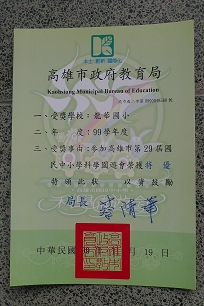 高雄市政府教育局
Kaohsiung Municipal Bureau of Education
一、受獎學校：龍華國小
二、年度：99學年度
三、受獎事由：參加高雄市第29屆國
民中小學科學園遊會榮獲特優
特頒此狀 以資鼓勵
局長 蔡清華
中華民國 月19日